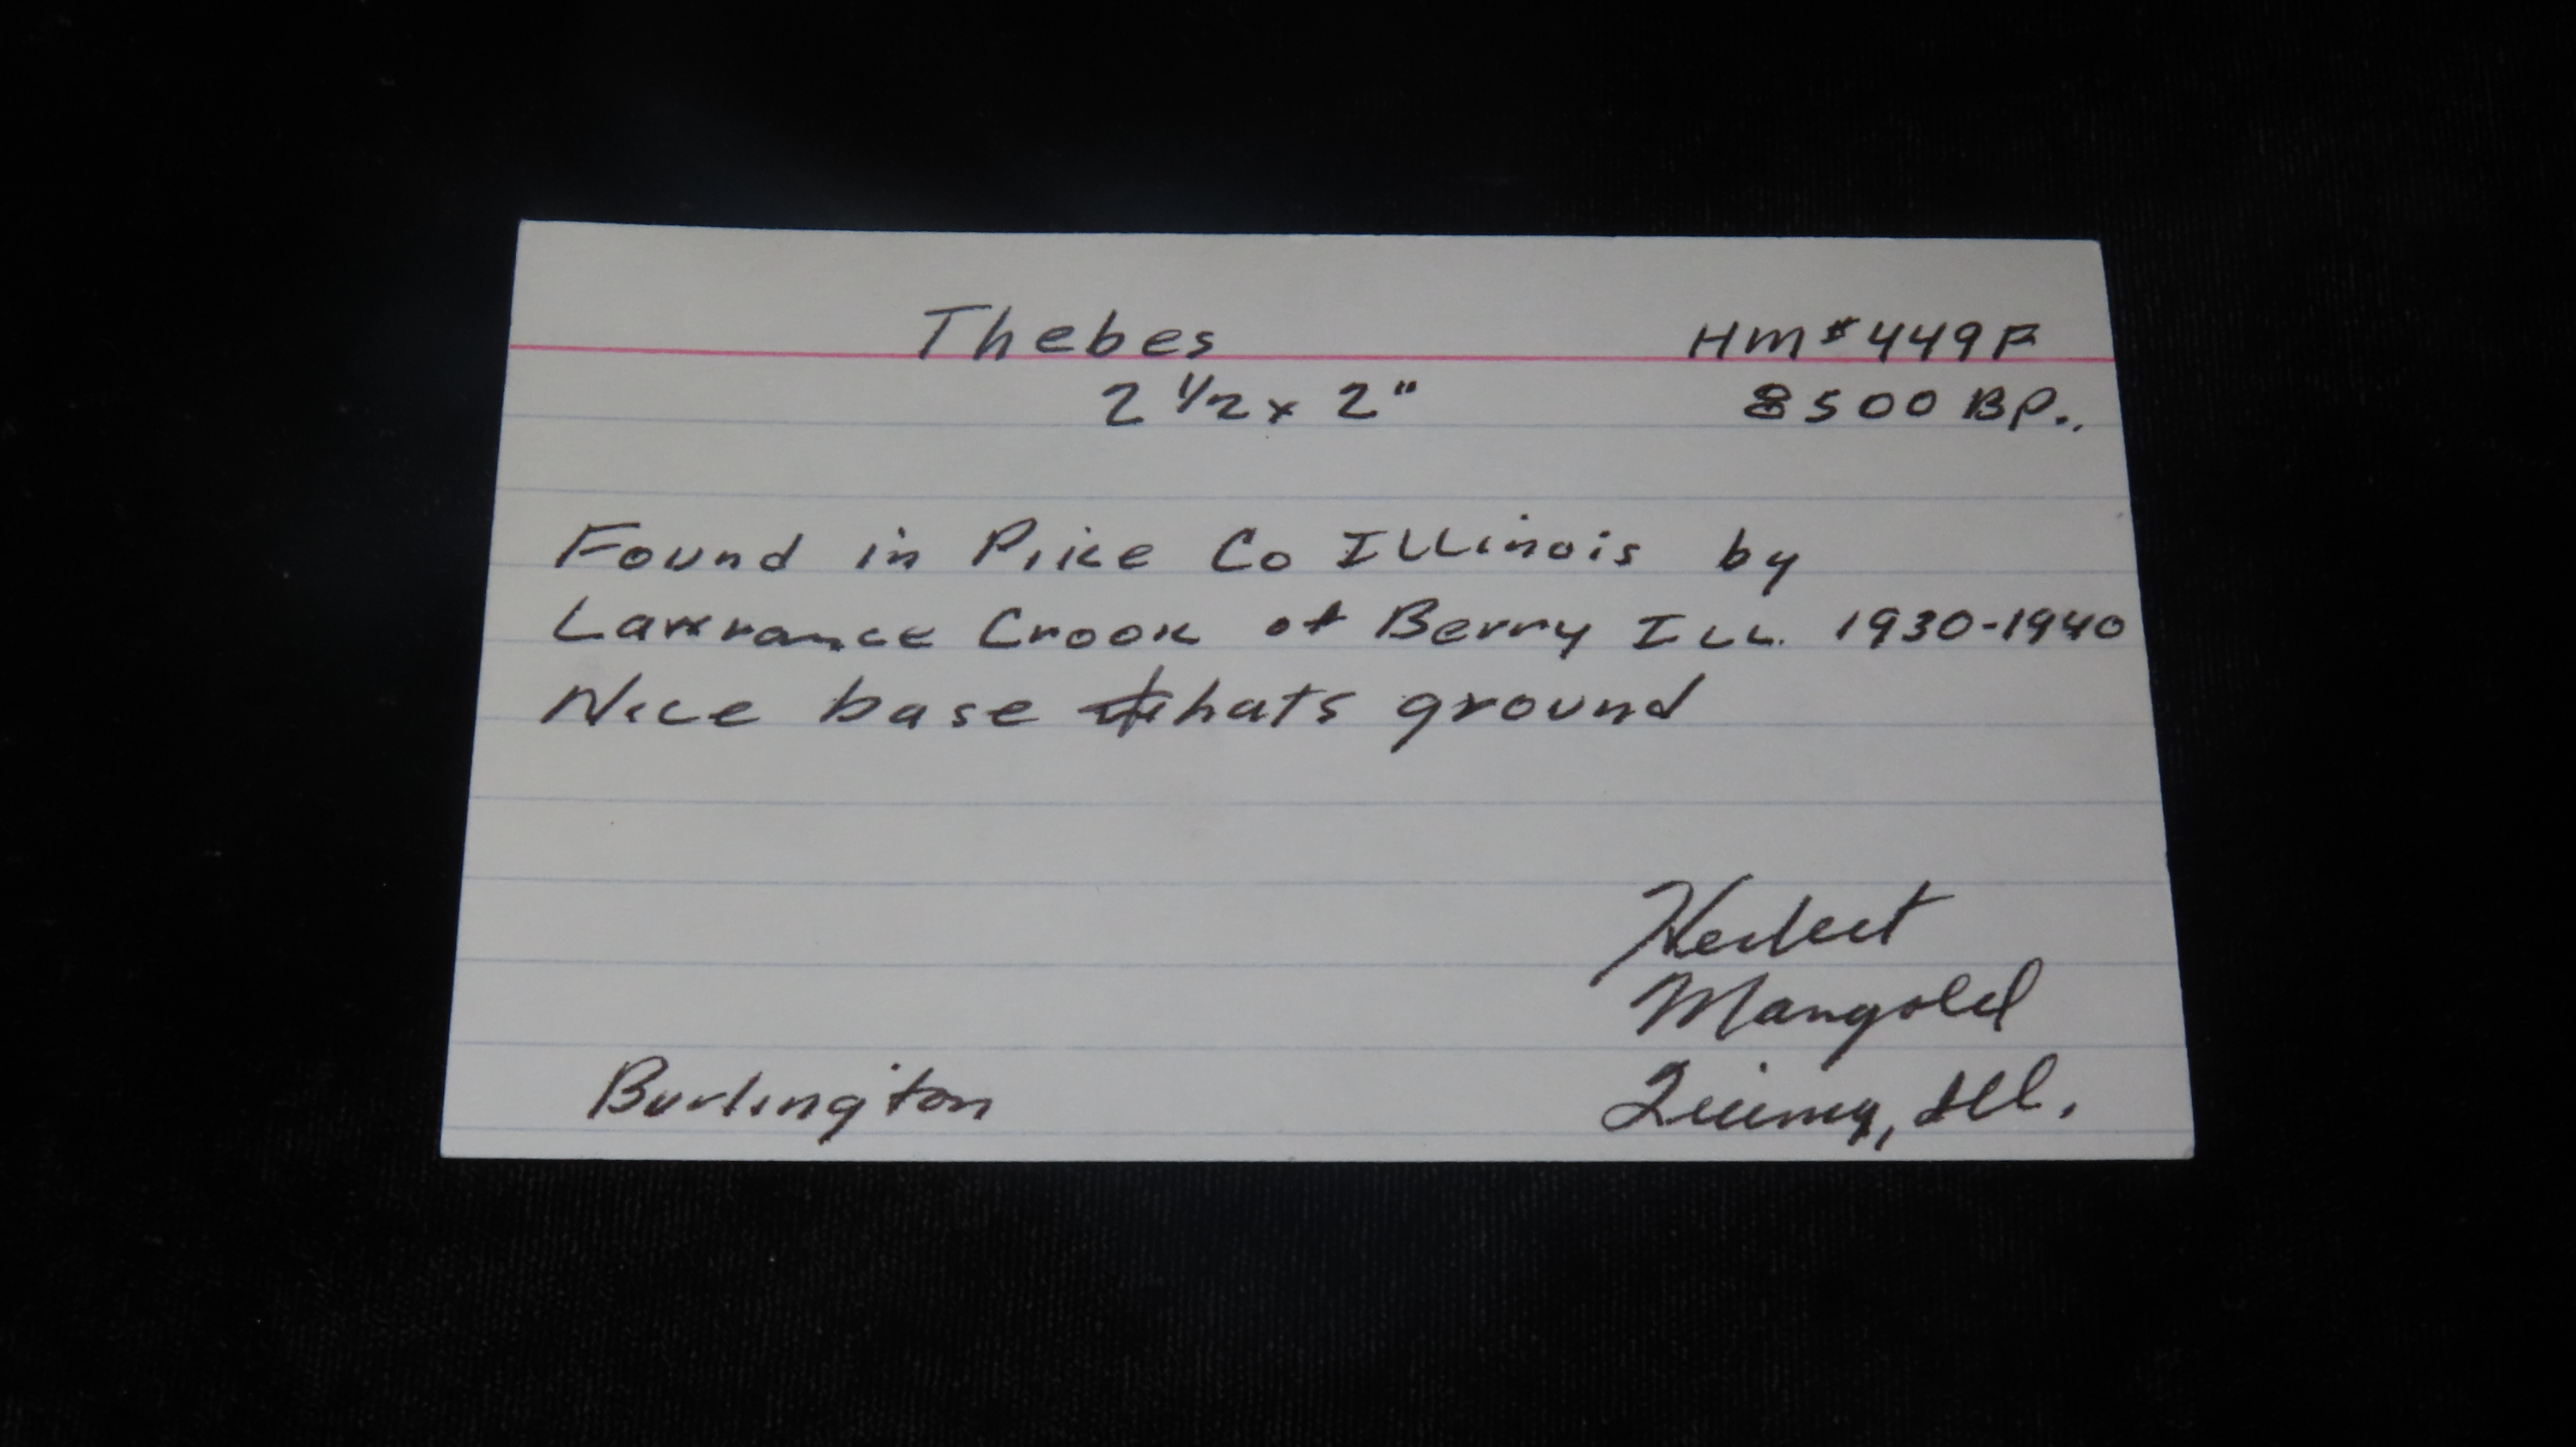 Thebes HM#449F
2 1/2 x 2" 8500 BP.,
Found in Pike Co Illinois by
Lawrance Crook of Berry Ill. 1930-1940
Nice base thats ground
Herbert
Mangold
Burlington Quincy, Ill.